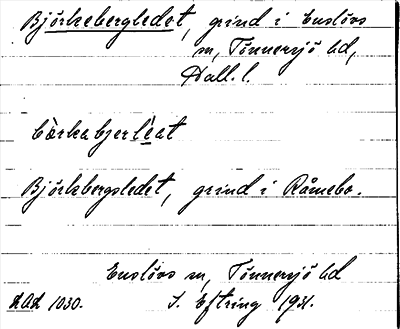 Björkebergledet, grind i Enslövs
sn, Tönnersjö hd,
Hall. l.
bərkabjerlèat
Björkbergsledet, grind i Råmebo.
Enslövs sn, Tönnersjö hd
KAK 1030. S. Eftring 1931.